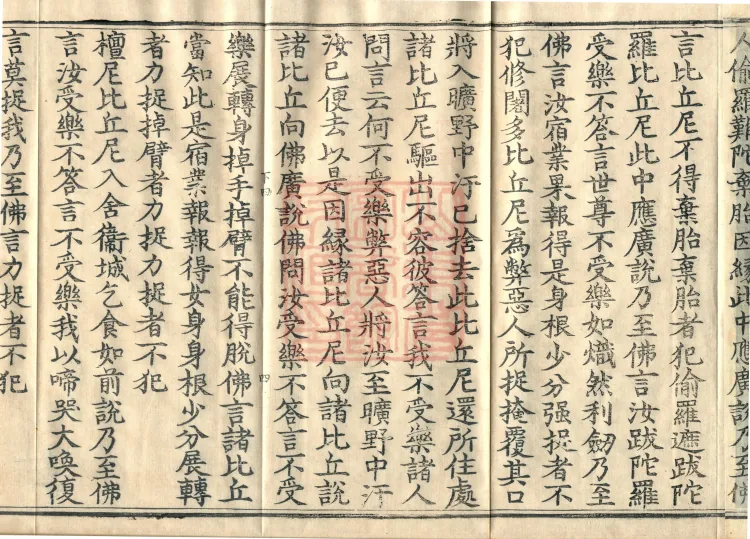 人偷羅難陀棄胎因緣此中應廣說乃至佛
言比丘尼不得棄胎棄胎者犯偷羅遮跋陀
羅比丘尼此中應廣說乃至佛言汝跋陀羅
受樂不答言世尊不受樂如熾然利劒乃至
佛言汝宿業果報得是身根少分强捉者不
犯修闍多比丘尼爲弊惡人所捉掩覆其口
將入曠野中汙已捨去此比丘尼還所住處
諸比丘尼驅出不容彼答言我不受樂諸人
問言云何不受樂弊惡人將汝至曠野中汙
汝已便去以是因緣諸比丘尼向諸比丘說
諸比丘向佛廣說佛問汝受樂不答言不受
下四 四
樂展轉身掉手掉臂不能得脫佛言諸比丘
當知此是宿業報報得女身身根少分展轉
者力捉掉臂者力捉者不犯
檀尼比丘尼入舍衞城乞食如前說乃至佛
言汝受樂不答言不受樂我以啼哭大喚復
言莫捉我乃至佛言力捉者不犯